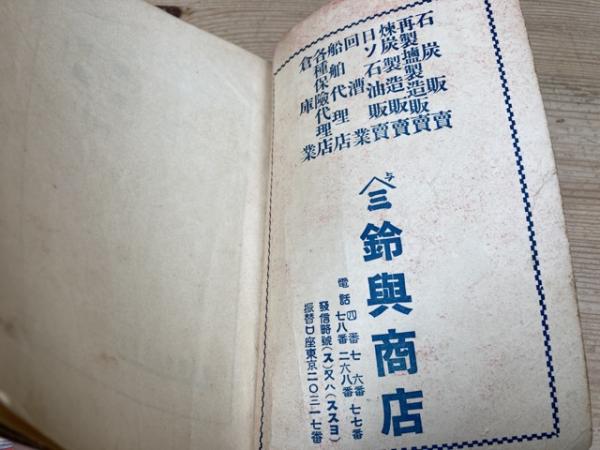 石炭販賣
再製鹽製造販賣
煉炭製造販賣
日ソ石油販賣
回漕業
船舶代理店
各種保險代理店
倉庫業
ヘ三与
鈴與商店
電話 四番 七六番 七七番
七八番 二六八番
發信略號(ス)又ハ(スヨ)
振替口座東京二〇三一七番